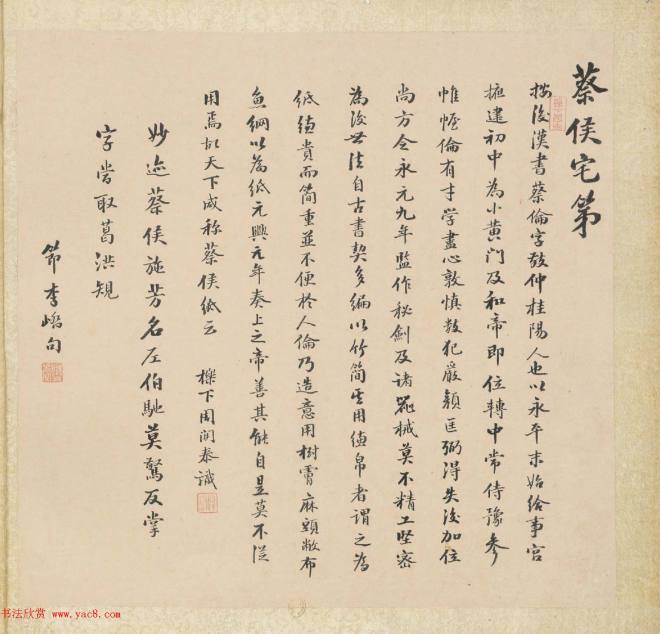 蔡侯宅第
按後漢書蔡倫字敬仲桂陽人也以永平末始給事宮
掖建初中為小黃門及和帝即位轉中常侍豫參
帷幄倫有才學盡心敦慎數犯嚴顏匡弼得失後加位
尚方令永元九年監作秘劍及諸器械莫不精工堅密
為後世法自古書契多編以竹簡其用縑帛者謂之為
紙縑貴而簡重並不便於人倫乃造意用樹膚麻頭敝布
魚網以為紙元興元年奏上之帝善其能自是莫不從
用焉故天下咸稱蔡侯紙云 櫟下周閑泰識
妙迹蔡侯施芳名左伯馳莫驚反掌
字當取葛洪規
節李嶠句
书法欣赏 www.yac8.com